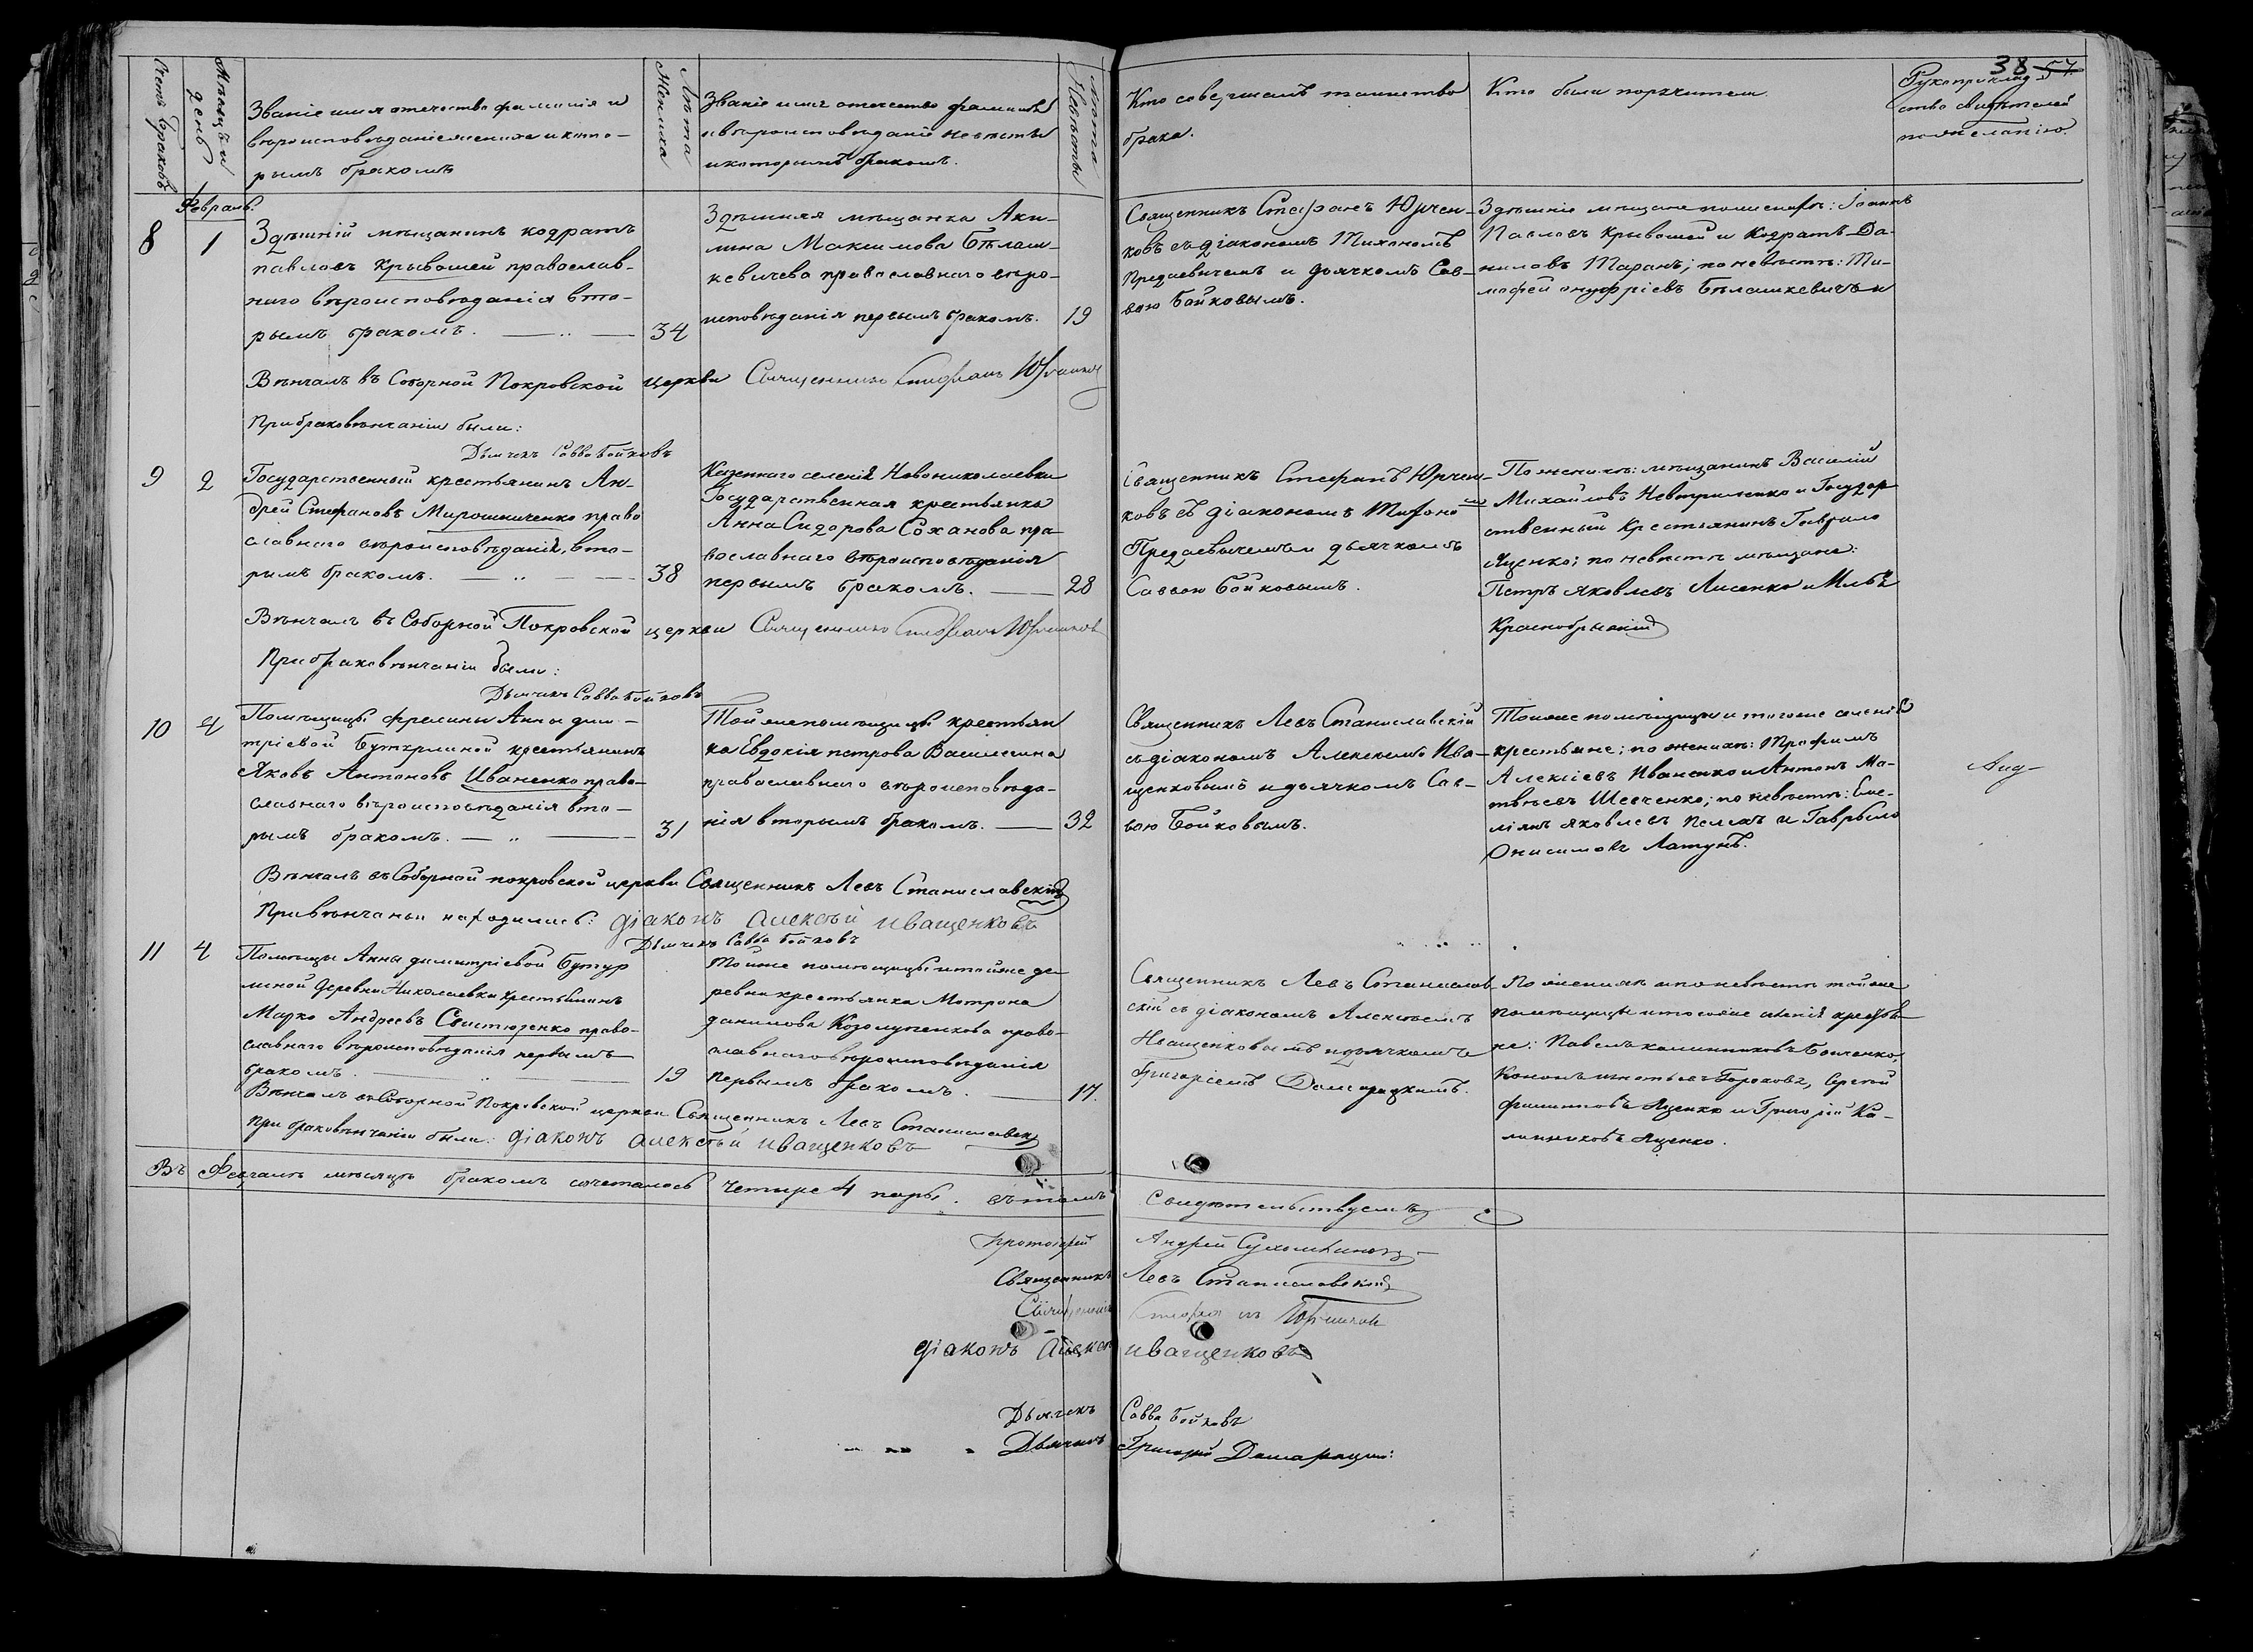 38 57.
Счетъ браковъ
Мѣсяцъ и день
Званіе имя отечество фамилія и
вѣроисповѣданіе жениха и кото-
рымъ бракомъ
Лѣта Жениха
Званіе имя отечество фамилія
и вѣроисповѣданіе невѣсты
и которымъ бракомъ.
Лѣта Невѣсты
Кто совершалъ таинство
брака.
Кто были поручители
Рукоприклад-
ство свидѣтелей
по желанію.
Февраль.
8
1
Здѣшній мѣщанинъ кодратъ
павловъ Крывошей православ-
наго вѣроисповѣданія вто-
рымъ бракомъ.
34
Здѣшняя мѣщанка Аки-
лина Максимова Бѣлаш-
кевичева православнаго вѣро-
исповѣданія первымъ бракомъ.
19
Священникъ Стефанъ Юрчен-
ковъ съ діакономъ Тихономъ
Предаевичемъ и дьячкомъ Сав-
вою Бойковымъ.
Здѣшніе мѣщане по женихѣ: Іоаннъ
Павловъ Крывошей и Кодратъ Да-
ниловъ Таранъ; по невѣстѣ: Ти-
мофей онуфріевъ Бѣлашкевичъ и
Вѣнчалъ въ Соборной Покровской церкви Священникъ Стефанъ Юрченковъ
При браковѣнчаніи были:
Дьячекъ Савва Бойковъ
9
2
Государственный крестьянинъ Ан-
дрей Стефановъ Мирошниченко право
славнаго вѣроисповѣданія, вто-
рымъ бракомъ.
38
Казеннаго селенія Новониколаевки
Государственная крестьянка
Анна Сидорова Соханова пра-
вославнаго вѣроисповѣданія
первымъ бракомъ.
28
Священникъ Стефанъ Юрчен-
ковъ съ діакономъ Тихоно
Предаевичемъ и дьячкомъ
Саввою Бойковымъ.
По женихѣ: мѣщанинъ Василій
Михайловъ и Государ
ственный Крестьянинъ Гаврило
Яценко; по невѣстѣ мѣщане:
Петръ яковлевъ Лисенко и Илья
Краснобрыжій
Вѣнчалъ въ Соборной Покровской церкви Священникъ Стефанъ Юрченковъ
При браковѣнчаніи были:
Дьячекъ Савва Бойковъ
10
4
Помѣщицы фрелины Анны дим-
тріевой Бутурлиной крестьянинъ
Яковъ Антоновъ Иваненко право-
славнаго вѣроисповѣданія вто-
рымъ бракомъ.
31
Той же помѣщицы крестьян
ка Евдокія петрова Василесина
православнаго вѣроисповѣда-
нія вторымъ бракомъ.
32
Священникъ Левъ Станиславскій
съ діакономъ Алексѣемъ Ива-
щенковымъ и дьячкомъ Сав-
вою Бойковымъ.
Тойже помѣщицы и тогоже селенія
крестьяне; по женихѣ: Трофимъ
Алексіевъ Иваненко и Антонъ Ма-
твѣевъ Шевченко; по невѣстѣ: Еме-
ліянъ яковлевъ и Гаврыло
Онисимовъ Латунъ.
Вѣнчалъ въ Соборной покровской церкви Священникъ Левъ Станиславскій
При вѣнчаньи находились: діаконъ алексѣй иващенковъ
Дьячекъ Савва Бойковъ
11
4
Помѣщицы Анны димитріевой Бутур
линой деревни Николаевки крестьянинъ
Марко Андреевъ Свистюзенко право-
славнаго вѣроисповѣданія первымъ
бракомъ.
19
Тойже помѣщицы и тойже де-
ревни крестьянка Матрона
данилова Козолупенкова право-
славнаго вѣроисповѣданія
первымъ бракомъ.
17.
Священникъ Левъ Станислав-
скій съ діакономъ Алексѣемъ
Иващенковымъ и дьячкомъ
Григоріемъ Домарацкимъ.
По женихѣ и по невѣстѣ той же
помѣщицы и тогоже селенія крестья-
не: Павелъ калинниковъ Бойченко,
Кононъ игнатьевъ Гороховъ, Сергей
филипповъ Яценко и Григорій Ка-
линниковъ Яценко.
Вѣнчалъ въ Соборной Покровской церкви Священникъ Левъ Станиславскій
При браковѣнчаніи были: діаконъ алексѣй иващенковъ
Въ Февралѣ мѣсяцѣ бракомъ сочеталось четыре 4 пары. въ томъ свидѣтельствуемъ
протоіерей Андрей Сухомлиновъ
Священникъ Левъ Станиславскій
Священникъ Стефанъ Юрченковъ
діаконъ Алексѣй иващенковъ
Дьячекъ Савва Бойковъ
Дьячекъ Григорій Домарацкій: